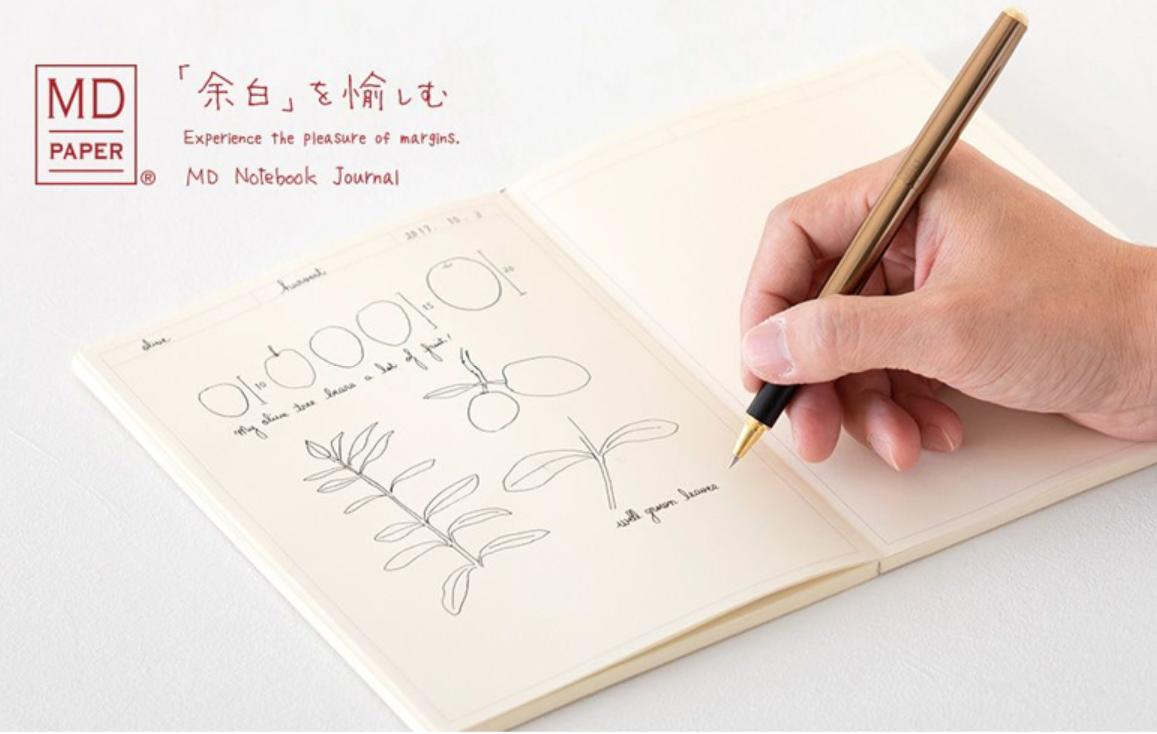 MD
PAPER
®
「余白」を愉しむ
Experience the pleasure of margins.
MD Notebook Journal
2017. 10. 3
harvest
olive
20
15
10
My olive tree bears a lot of fruit!
well grown leaves